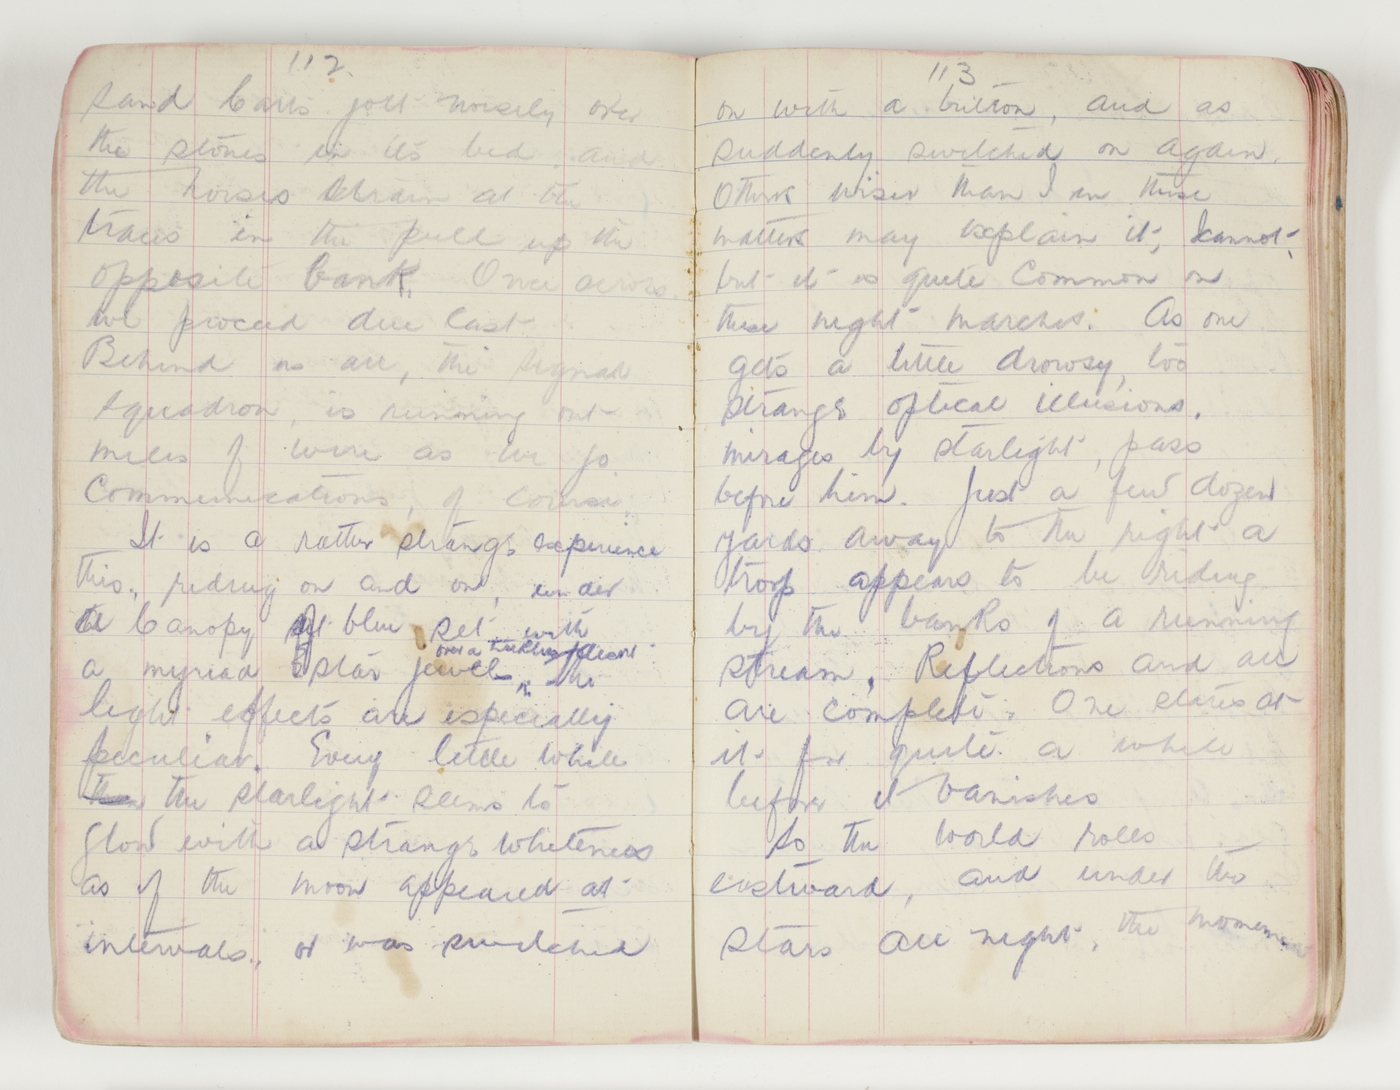 112.
sand carts jolt noisely over
the stones in its bed, and
the horses strain at the
traces in the pull up the
opposite bank. Once across
we proceed due East.
Behind us all, the signal
squadron, is running out
miles of wire as we go.
Communications, of course.
It is a rather strange experience
this, riding on and on, under
a canopy of blue set with
over a
a myriad star jewels, the
light effects are especially
peculiar. Every little while
the starlight seems to
glow with a strange whiteness
as if the moon appeared at
intervals, or was switched
113
on with a button, and as
suddenly switched on again.
Others wiser than I in these
matters may explain it, I cannot,
but it is quite common on
these night marches. As one
gets a little drowsy, too
strange optical illusions,
mirages by starlight, pass
before him. Just a few dozen
yards away to the right a
troop appears to be riding
by the banks of a running
stream. Reflections and all
are complete. One stares at
it for quite a while
before it vanishes
So the world rolls
eastward, and under the
stars all night, the